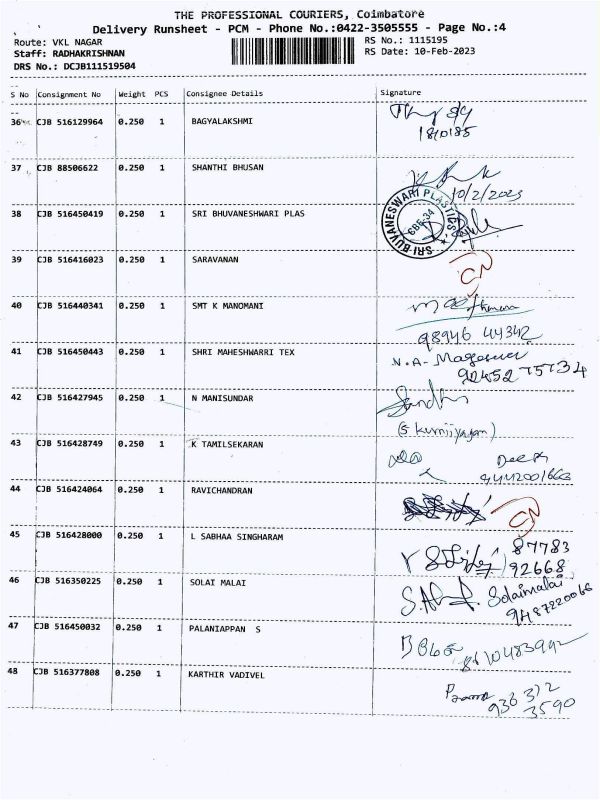 THE PROFESSIONAL COURIERS, Coimbatore
Delivery Runsheet - PCM - Phone No.:0422-3505555 - Page No.:4
Route: VKL NAGAR RS No.: 1115195
Staff: RADHAKRISHNAN RS Date: 10-Feb-2023
DRS No.: DCJB111519504
S No Consignment No Weight PCS Consignee Details Signature
36 CJB 516129964 0.250 1 BAGYALAKSHMI
37 CJB 88506622 0.250 1 SHANTHI BHUSAN
10/2/2023
38 CJB 516450419 0.250 1 SRI BHUVANESHWARI PLAS
SRI BUVANESWARI PLASTICS
CBE-34
39 CJB 516416023 0.250 1 SARAVANAN
CN
40 CJB 516440341 0.250 1 SMT K MANOMANI
98946 44342
41 CJB 516450443 0.250 1 SHRI MAHESHWARRI TEX
N.A-
92452 75734
42 CJB 516427945 0.250 1 N MANISUNDAR
43 CJB 516428749 0.250 1 K TAMILSEKARAN
44 CJB 516424064 0.250 1 RAVICHANDRAN
CN
45 CJB 516428000 0.250 1 L SABHAA SINGHARAM
87783
92668
46 CJB 516350225 0.250 1 SOLAI MALAI
Solaimalai
9487220066
47 CJB 516450032 0.250 1 PALANIAPPAN S
48 CJB 516377808 0.250 1 KARTHIR VADIVEL
936 372
3590